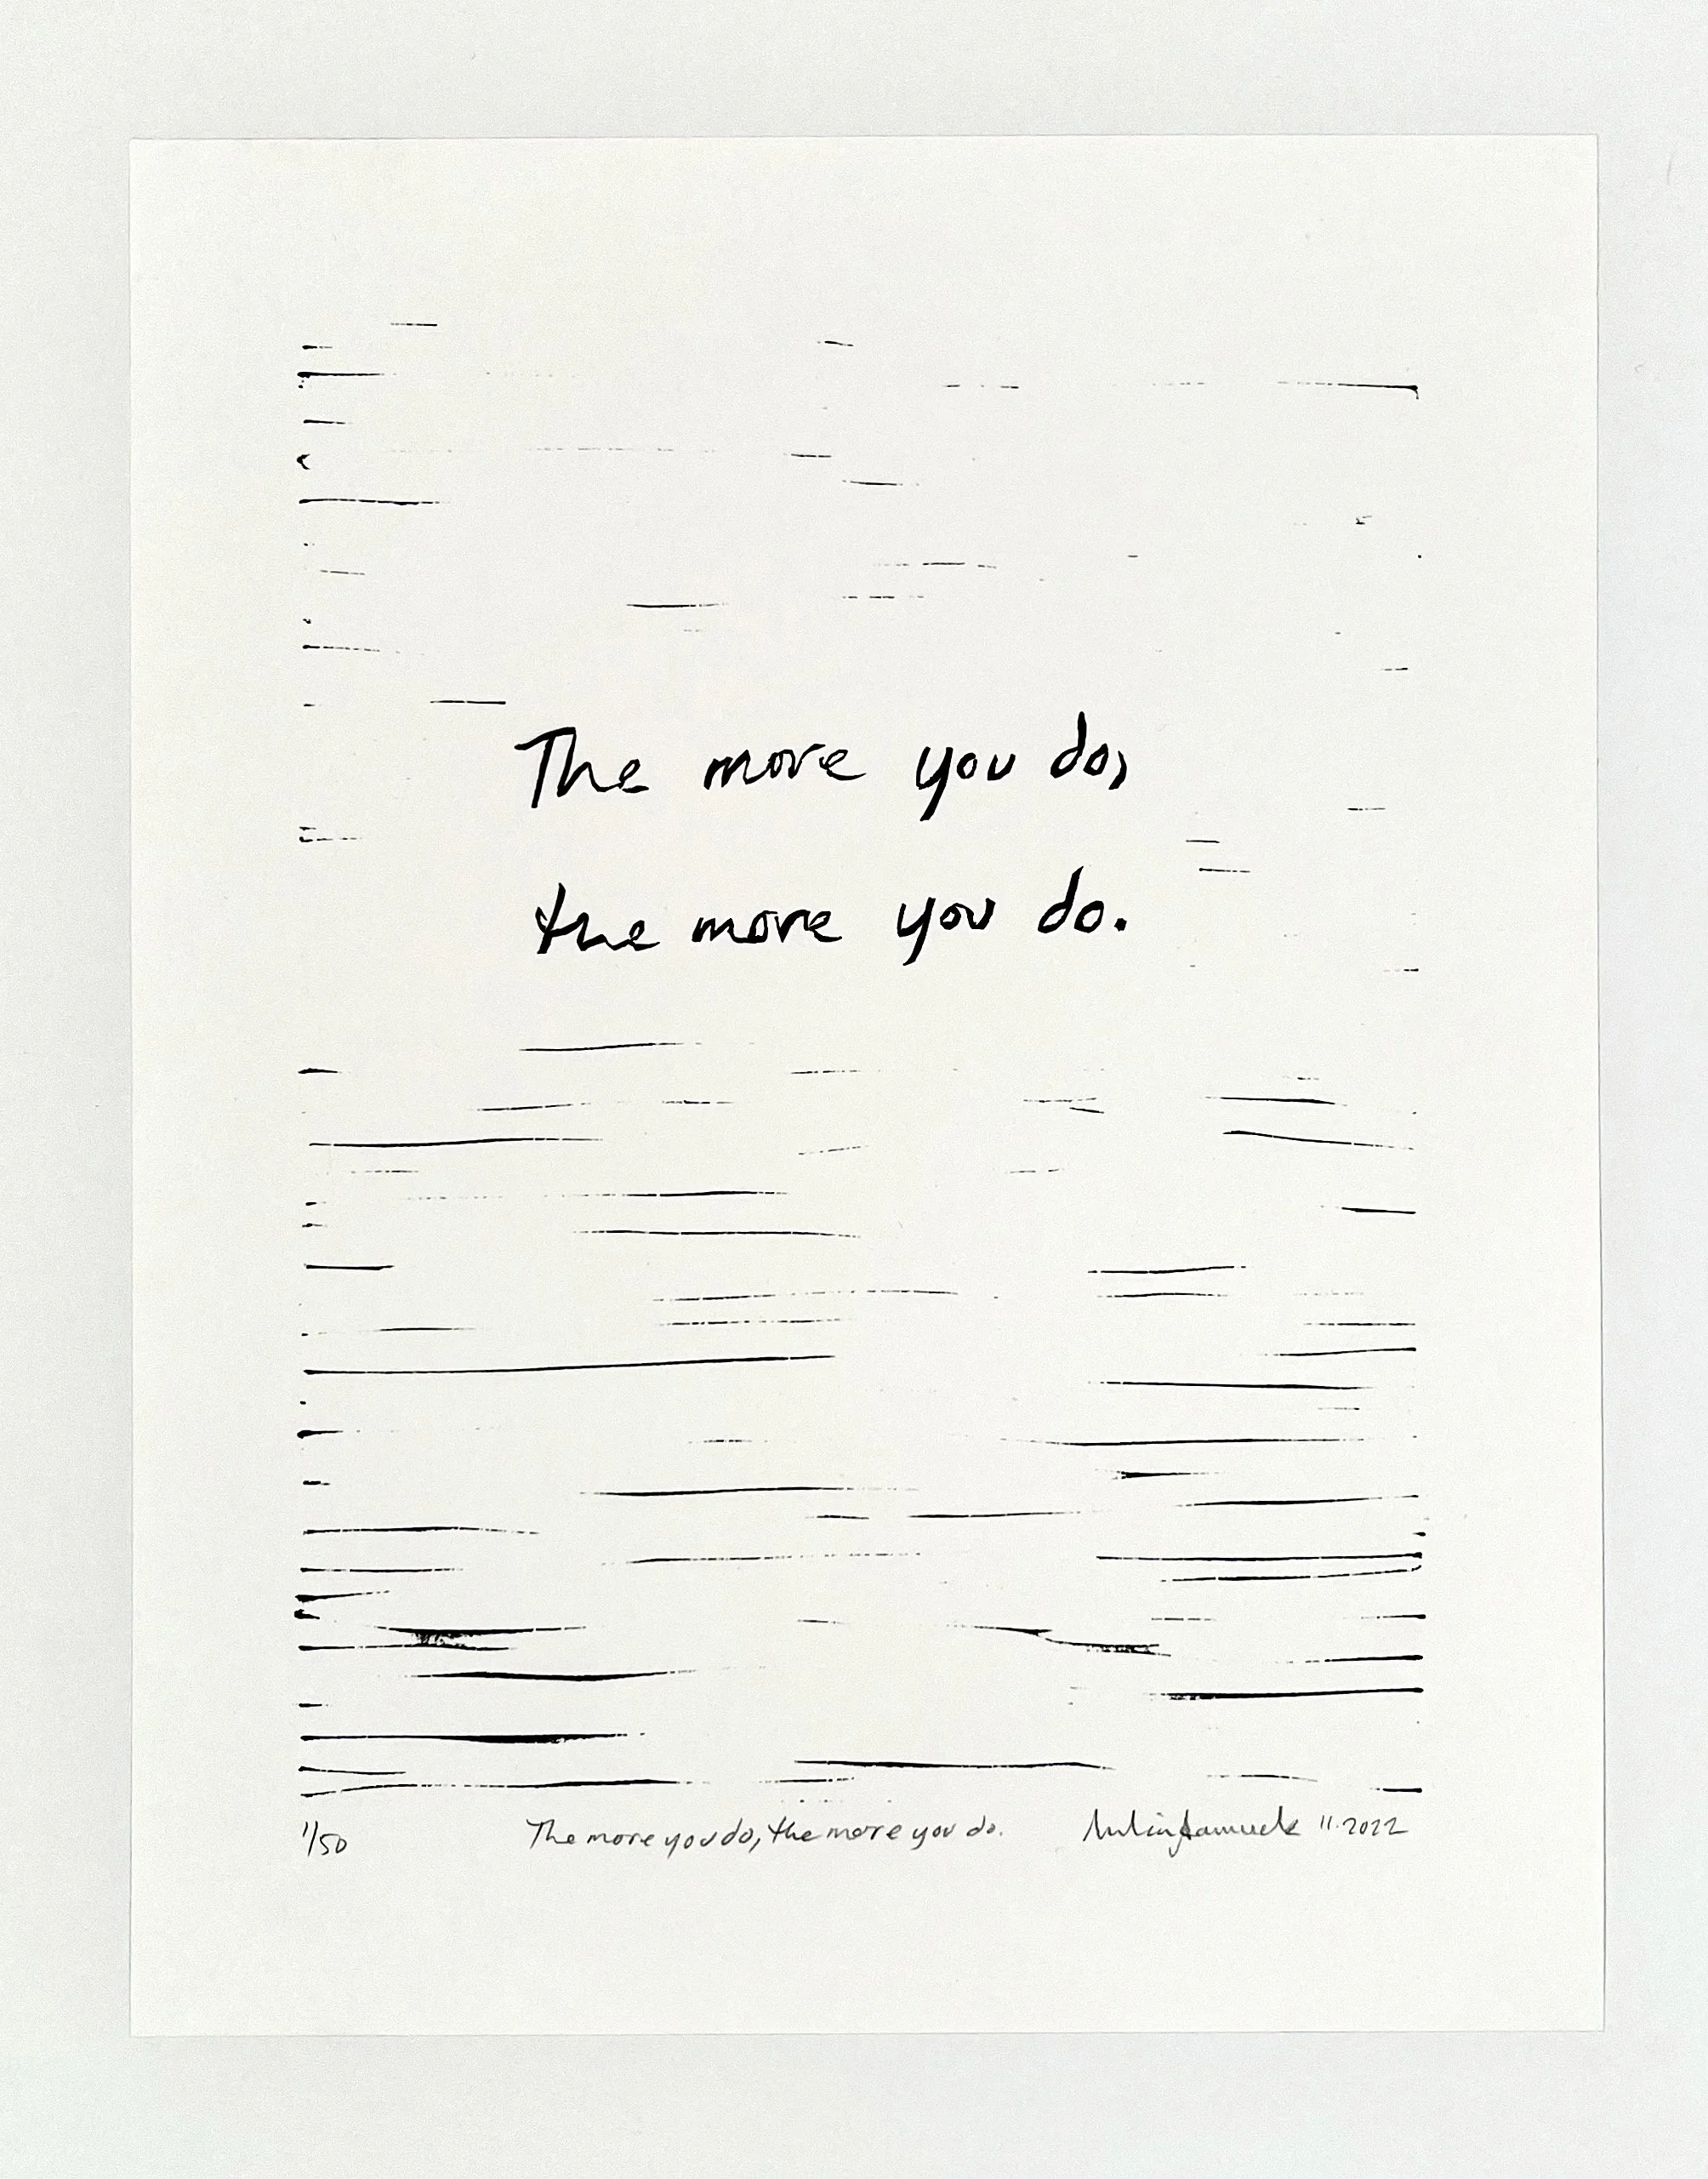 The more you do,
the more you do.
1/50 The more you do, the more you do. 11.2022